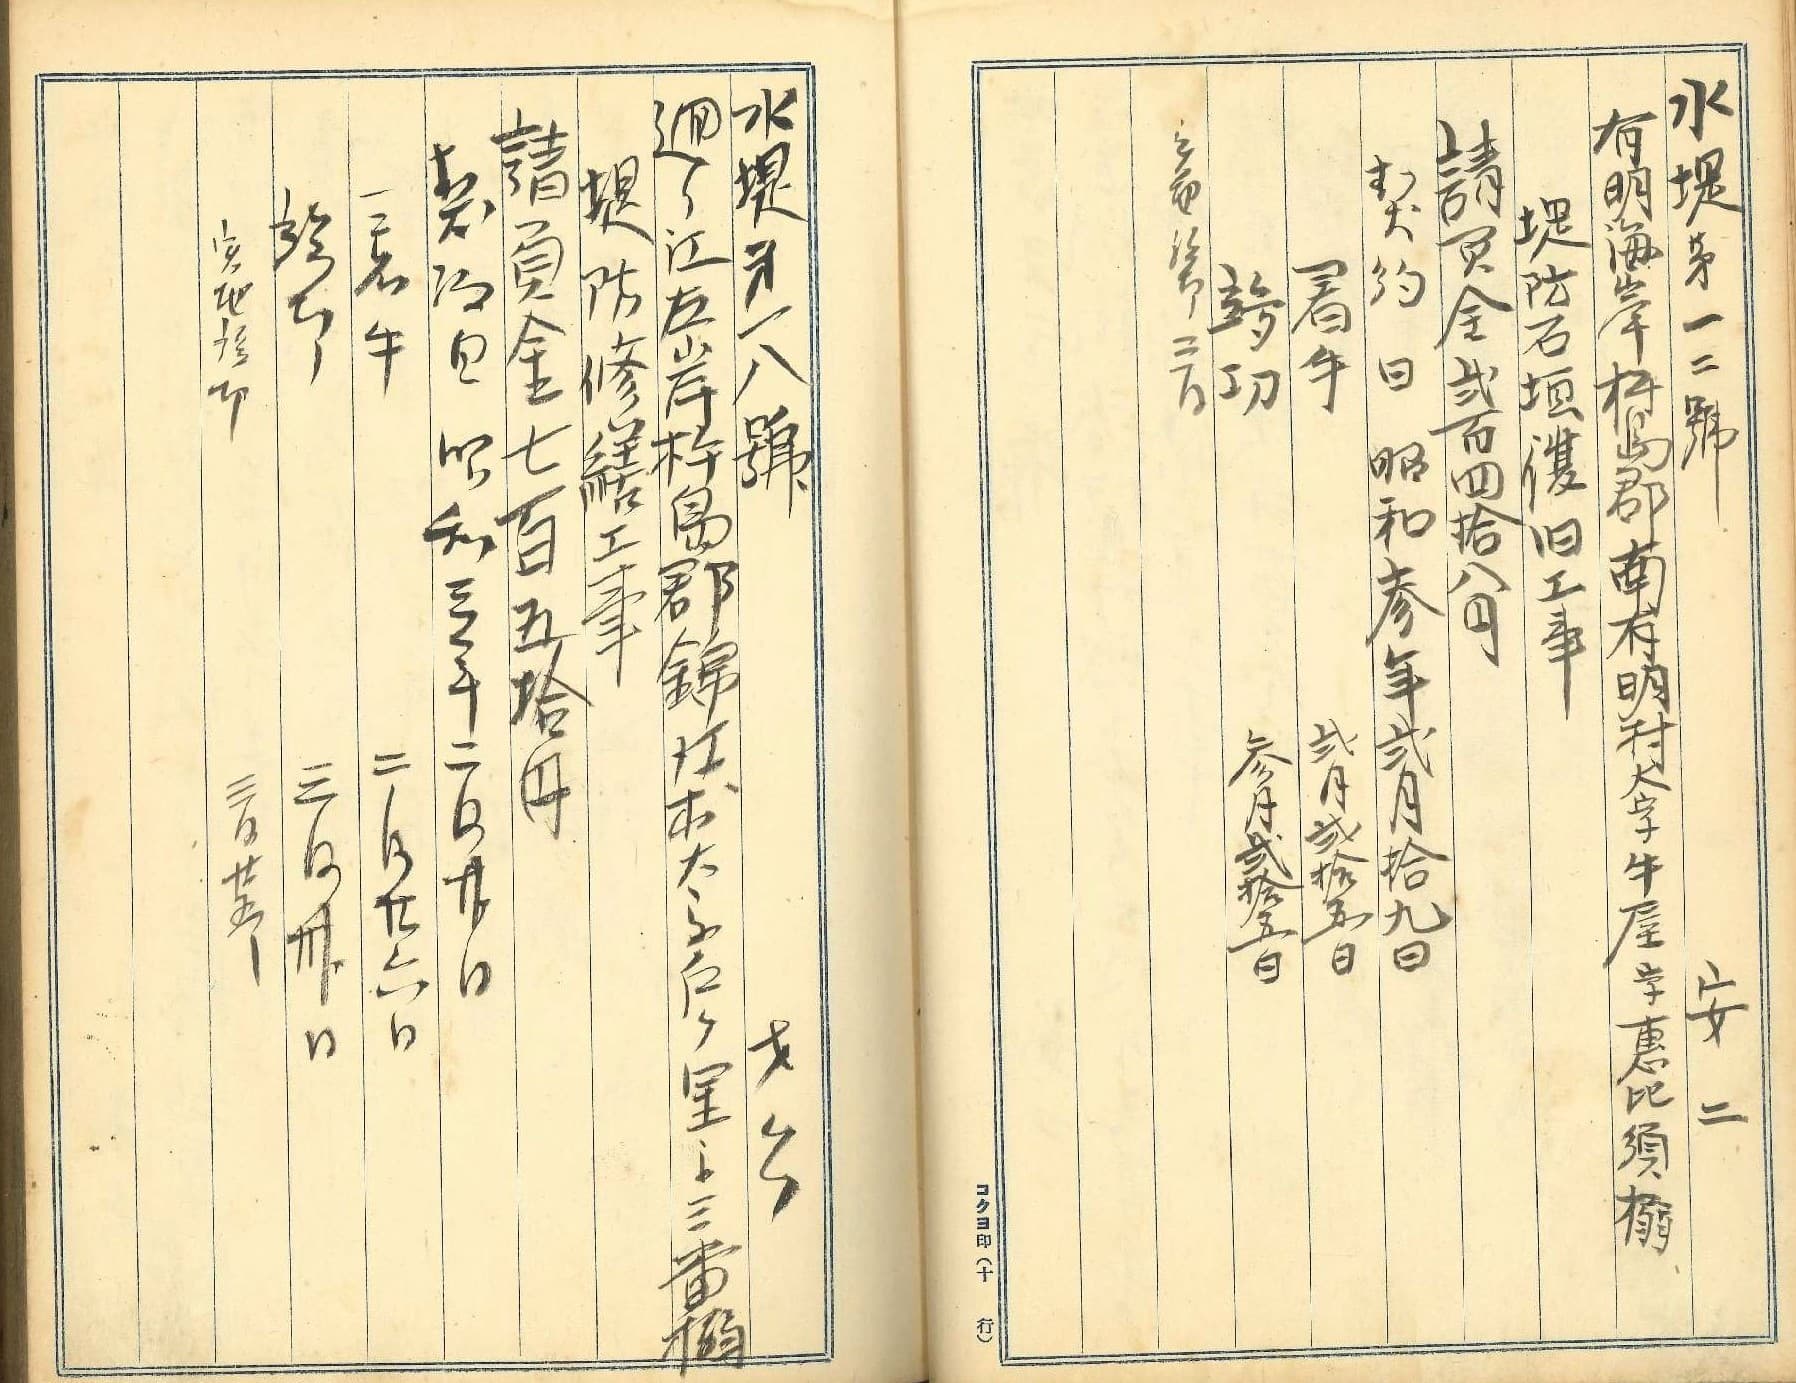 水堤第一二號 安二
有明海岸杵島郡南有明村大字牛屋字恵比須搦
堤防石垣復旧工事
請負金弐百四拾八円
契約日 昭和参年弐月拾九日
着手 弐月弐拾五日
竣功 参月弐拾五日
コクヨ印(十行)
水堤第一八號
廻り江左岸杵島郡錦江村大字戸ケ里 三番搦
堤防修繕工事
請負金七百五拾円
契約日 昭和三年二月廿日
着手 二月廿六日
竣功 三月卅日
実地